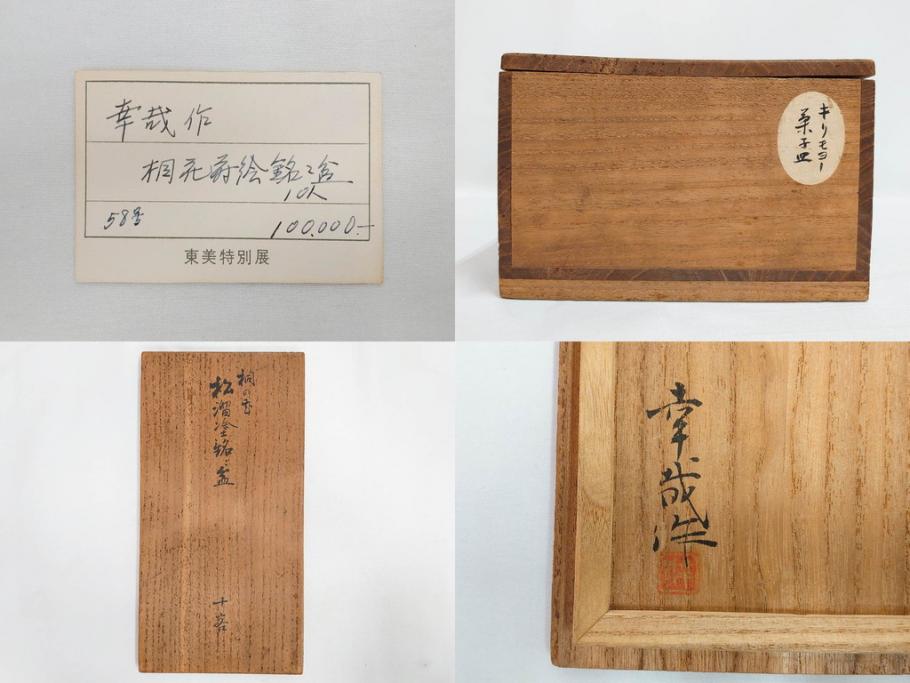 幸哉 作
桐花蒔絵銘々盆
10人
58号
100,000.-
東美特別展
キリモヨー
菓子皿
桐の香
松溜塗銘々盆
十客
幸哉作